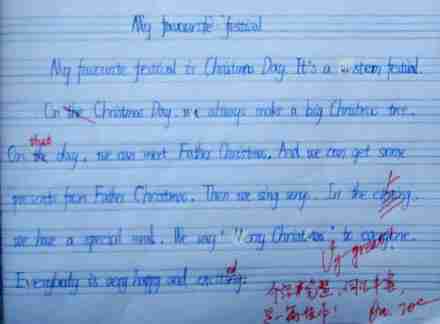 My favourite festival
My favourite festival is Christmas Day. It's a western festival.
On the Christmas Day, we always make a big Christmas tree.
that
On the day, we can meet Father Christmas. And we can get some
presents from Father Christmas. Then we sing songs. In the
we have a special meal. We say " Merry Christmas" to everyone.
Everybody is very happy and exciting.
ed
Very great!